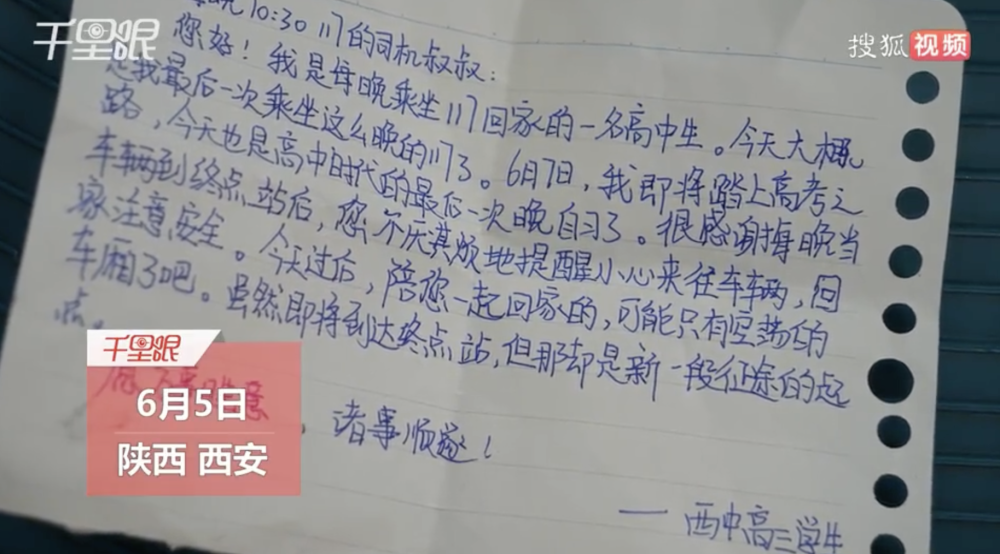 千里眼
搜狐视频
晚10:30 117的司机叔叔：
您好！我是每晚乘坐117回家的一名高中生。今天大概
是我最后一次乘坐这么晚的117了。6月7日，我即将踏上高考之
路，今天也是高中时代的最后一次晚自习了。很感谢每晚当
车辆到终点站后，您不厌其烦地提醒小心来往车辆，回
家注意安全。今天过后，陪您一起回家的，可能只有空荡的
车厢了吧。虽然即将到达终点站，但那却是新一段征途的起
点。
诸事顺遂！
——西中高三学生
千里眼
6月5日
陕西 西安